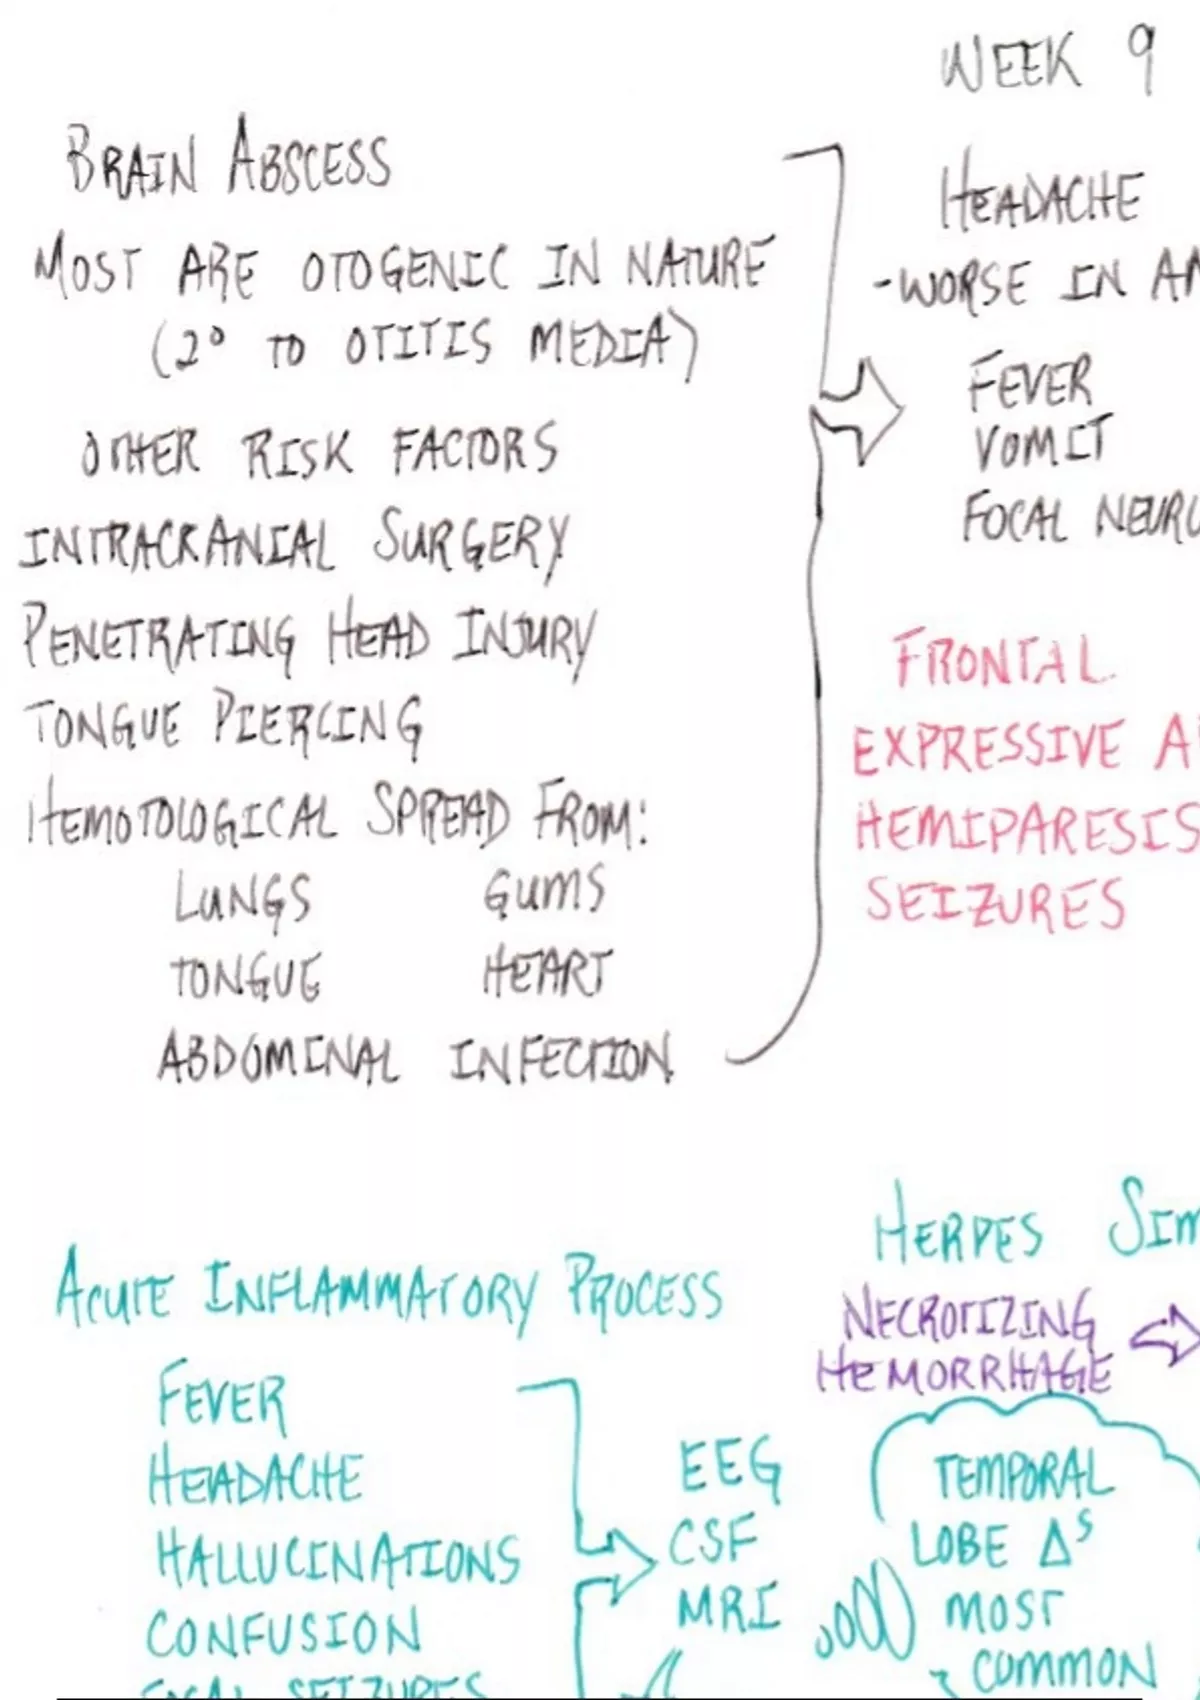 WEEK 9
BRAIN ABSCESS
MOST ARE OTOGENIC IN NATURE
(2° TO OTITIS MEDIA)
OTHER RISK FACTORS
INTRACRANIAL SURGERY
PENETRATING HEAD INJURY
TONGUE PIERCING
HEMOTOLOGICAL SPREAD FROM:
LUNGS GUMS
TONGUE HEART
ABDOMINAL INFECTION
HEADACHE
-WORSE IN AM
FEVER
VOMIT
FOCAL NEURO
FRONTAL
EXPRESSIVE A
HEMIPARESIS
SEIZURES
ACUTE INFLAMMATORY PROCESS
FEVER
HEADACHE
HALLUCINATIONS
CONFUSION
FOCAL SEIZURES
EEG
CSF
MRI
HERPES SIM
NECROTIZING
HEMORRHAGE
TEMPORAL
LOBE Δs
MOST
COMMON